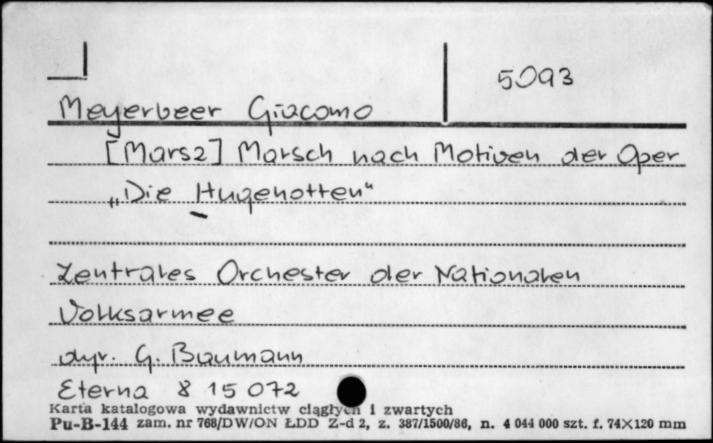 5093
Meyerbeer Giacomo
[Marsz] Marsch nach Motiven der Oper
„Die Hugenotten“
Zentrales Orchester der Nationalen
Volksarmee
dyr. G. Baumann
Eterna 8 15 072
Karta katalogowa wydawnictw ciągłych i zwartych
Pu-B-144 zam. nr 768/DW/ON ŁDD Z-d 2, z. 387/1500/86, n. 4 044 000 szt. f. 74×120 mm